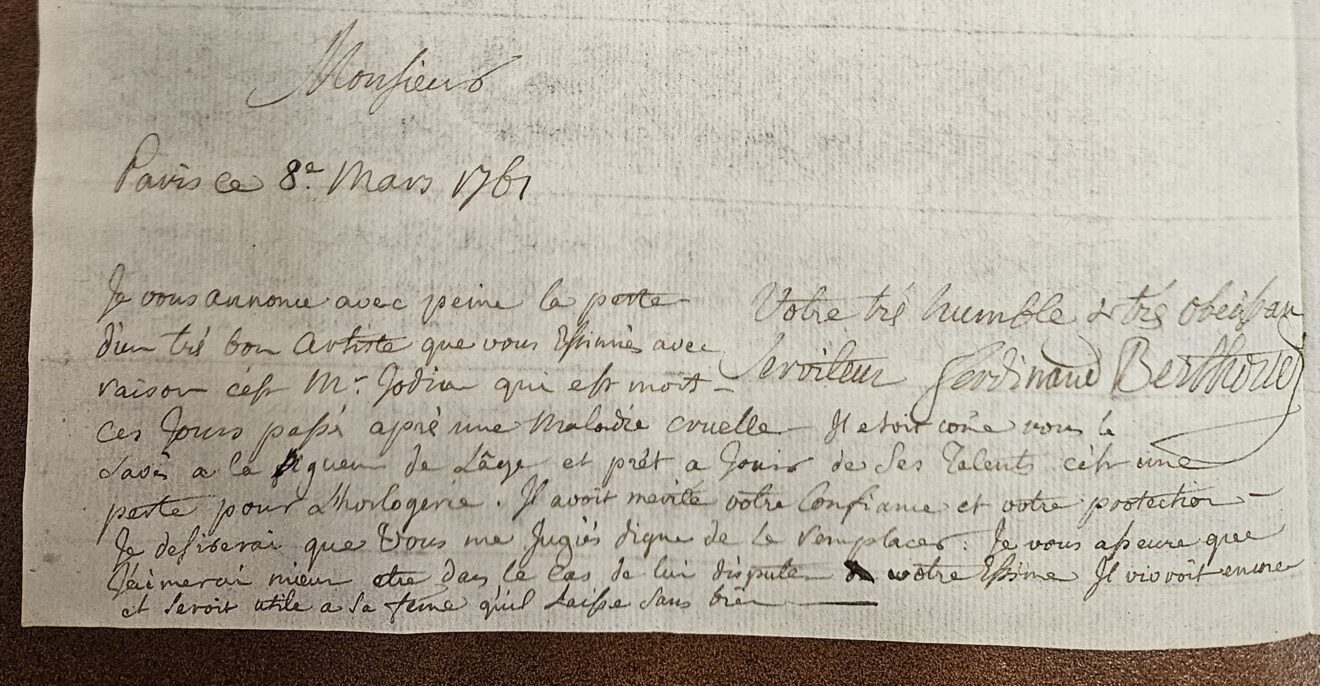 Monsieur
Paris ce 8e Mars 1761
Je vous annonce avec peine la perte
d'un tré bon Artiste que vous Estimiés avec
raison c'est Mr Jodin qui est mort
ces Jours passé apré une Maladie cruelle Il etoit come vous le
savés a la vigueur de L'âge et prét a Jouir de Ses Talents c'est une
perte pour L'horlogerie. Il avoit merité votre Confiance et votre protection
Je desirerai que Vous me Jugiés digne de Le remplacer. Je vous asseure que
J'aimerai mieux etre dans le Cas de lui disputer votre Estime Il vivroit encore
et seroit utile a sa feme qu'il Laisse Sans bien
Votre tré humble et tré obeissan
Serviteur Ferdinand Berthoud